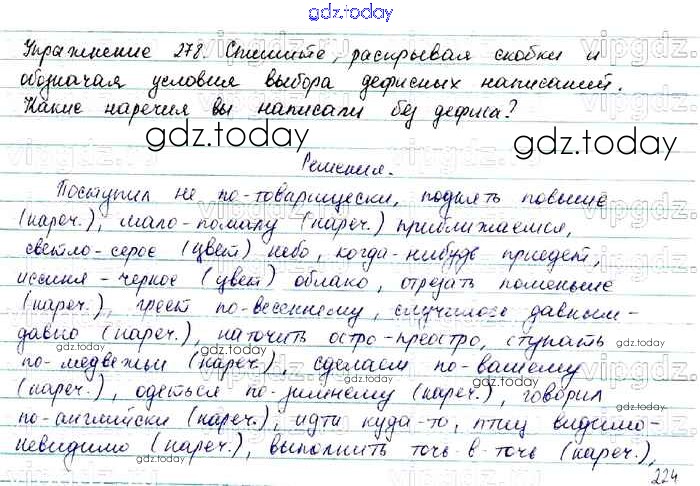 gdz.today
Упражнение 278. Спишите, раскрывая скобки и
обозначая условия выбора дефисных написаний.
Какие наречия вы написали без дефиса?
gdz.today gdz.today
Решения.
Поступил не по-товарищески, поднять повыше
(нареч.), мало-помалу (нареч.) приближаемся,
светло-серое (цвет) небо, когда-нибудь приедет,
иссиня-черное (цвет) облако, отрезать поменьше
(нареч.), греет по-весеннему, случилось давным-
давно (нареч.), наточить остро-преостро, ступать
по-медвежьи (нареч.), сделаем по-вашему
(нареч.), одеться по-зимнему (нареч.), говорил
по-английски (нареч.), идти куда-то, птиц видимо-
невидимо (нареч.), выполнить точь-в-точь (нареч.),
224